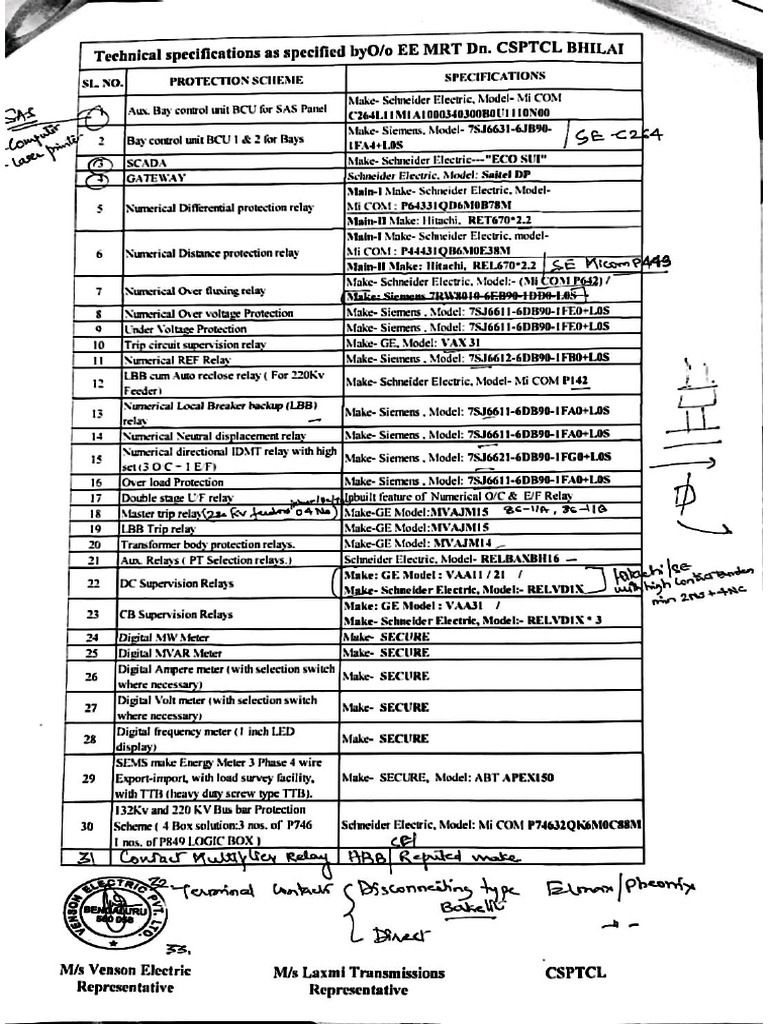 Technical specifications as specified byO/o EE MRT Dn. CSPTCL BHILAI
SL. NO. PROTECTION SCHEME SPECIFICATIONS
SAS
-Computer
-Laser printer
1 Aux. Bay control unit BCU for SAS Panel Make- Schneider Electric, Model- Mi COM
C264L11M1A1000340300B0U1110N00
2 Bay control unit BCU 1 & 2 for Bays Make- Siemens, Model- 7SJ6631-6JB90-
1FA4+L0S
SE-C264
3 SCADA Make- Schneider Electric---"ECO SUI"
4 GATEWAY Schneider Electric, Model: Saitel DP
5 Numerical Differential protection relay Main-I Make- Schneider Electric, Model-
Mi COM : P64331QD6M0B78M
Main-II Make: Hitachi, RET670*2.2
6 Numerical Distance protection relay Main-I Make- Schneider Electric, model-
Mi COM : P44431QB6M0E38M
Main-II Make: Hitachi, REL670*2.2
SE Micom P443
7 Numerical Over fluxing relay Make- Schneider Electric, Model:- (Mi COM P642) /
Make: Siemens 7RW8010-6EB90-1DD0-L0S
8 Numerical Over voltage Protection Make- Siemens , Model: 7SJ6611-6DB90-1FE0+L0S
9 Under Voltage Protection Make- Siemens , Model: 7SJ6611-6DB90-1FE0+L0S
10 Trip circuit supervision relay Make- GE, Model: VAX 31
11 Numerical REF Relay Make- Siemens , Model: 7SJ6612-6DB90-1FB0+L0S
12 LBB cum Auto reclose relay ( For 220Kv
Feeder) Make- Schneider Electric, Model- Mi COM P142
13 Numerical Local Breaker backup (LBB)
relay Make- Siemens , Model: 7SJ6611-6DB90-1FA0+L0S
14 Numerical Neutral displacement relay Make- Siemens , Model: 7SJ6611-6DB90-1FA0+L0S
15 Numerical directional IDMT relay with high
set (3 O C - 1 E/F) Make- Siemens , Model: 7SJ6621-6DB90-1FG0+L0S
16 Over load Protection Make- Siemens , Model: 7SJ6611-6DB90-1FA0+L0S
17 Double stage U/F relay Inbuilt feature of Numerical O/C & E/F Relay
18 Master trip relay (220 KV feeders 04 No Make-GE Model:MVAJM15 86-11A, 86-11B
19 LBB Trip relay Make-GE Model:MVAJM15
20 Transformer body protection relays. Make-GE Model:MVAJM14
21 Aux. Relays ( PT Selection relays.) Schneider Electric, Model- RELBAXBH16
22 DC Supervision Relays Make: GE Model : VAA11 / 21 /
Make- Schneider Electric, Model:- RELVD1X
Hitachi/SE
with high contact burden
min 2NO+4NC
23 CB Supervision Relays Make: GE Model : VAA31 /
Make- Schneider Electric, Model:- RELVD1X * 3
24 Digital MW Meter Make- SECURE
25 Digital MVAR Meter Make- SECURE
26 Digital Ampere meter (with selection switch
where necessary) Make- SECURE
27 Digital Volt meter (with selection switch
where necessary) Make- SECURE
28 Digital frequency meter (1 inch LED
display) Make- SECURE
29 SEMS make Energy Meter 3 Phase 4 wire
Export-import, with load survey facility,
with TTB (heavy duty screw type TTB). Make- SECURE, Model: ABT APEX150
30 132Kv and 220 KV Bus bar Protection
Scheme ( 4 Box solution:3 nos. of P746
1 nos. of P849 LOGIC BOX ) Schneider Electric, Model: Mi COM P74632QK6M0C88M
31 Contact Multiplier Relay ABB/ Reputed make
32 Terminal Contact Disconnecting type Elmex/Pheonix
Direct
33.
VENSON ELECTRIC PVT. LTD.
BENGALURU
M/s Venson Electric
Representative
M/s Laxmi Transmissions
Representative
CSPTCL